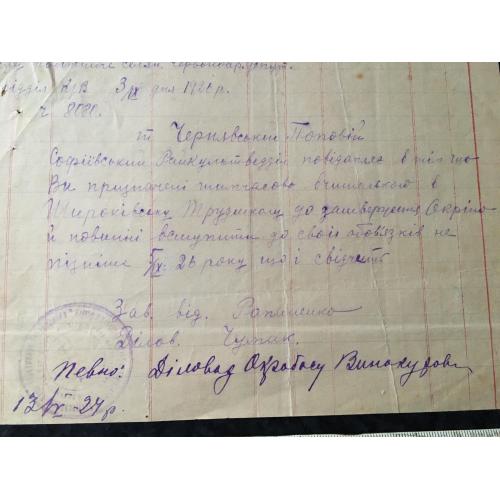 відділ 3/IX дня 1926 р.
ч 8020.
т Чернявській Поповій
Софіївський Райкультвідділ повідомляє в тім що
Ви призначені тимчасово вчителькою в
Широківську Трудшколу до затвердження Окріно
й повинні вступити до своїх обов'язків не
пізніше 5/IX 26 року що і свідчить
Зав. від.
Ділов. Чумак.
Певно: Діловод Окрбюсу Винокудова
13/IX-27 р.